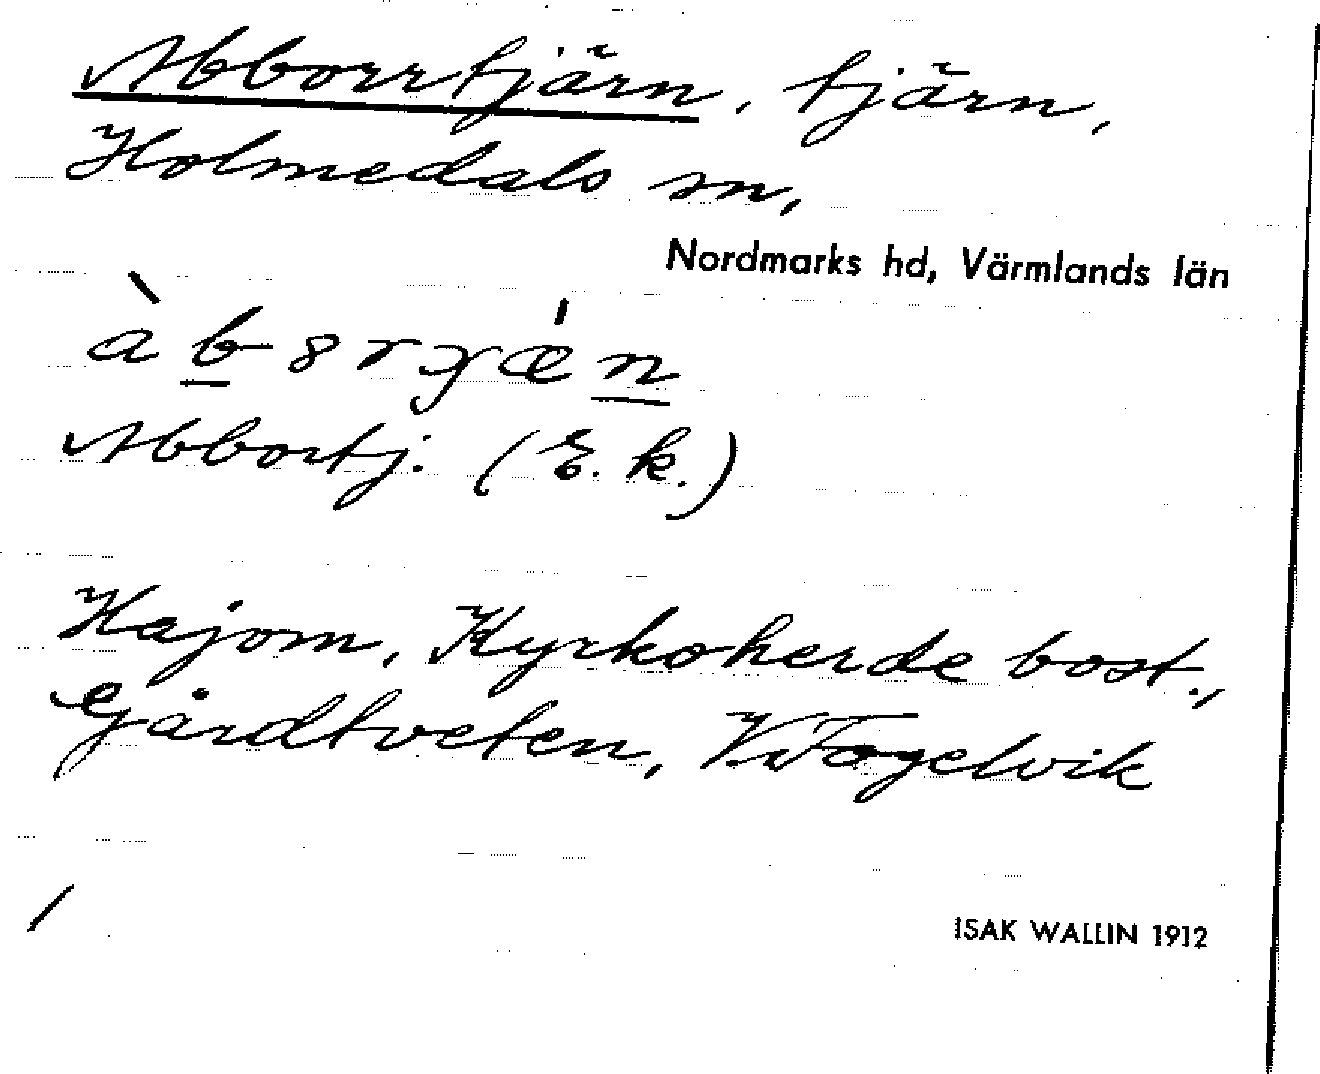 Abborrtjärn, tjärn,
Holmedals sn,
Nordmarks hd, Värmlands län
Abbortj. (E. k.)
Hajom, Kyrkoherde bost.,
Gårdtveten, V. Fogelvik
ISAK WALLIN 1912